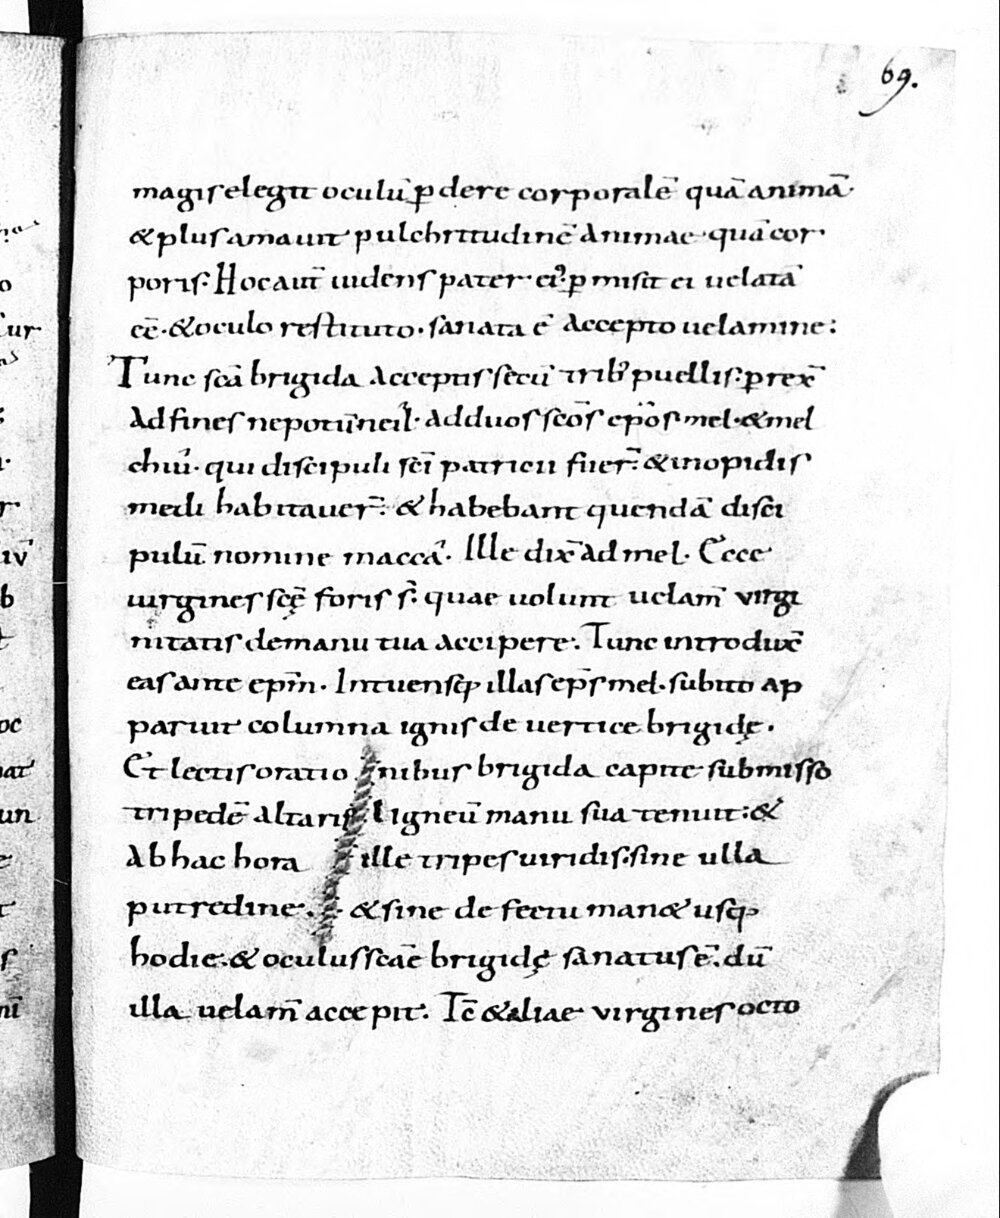 69.
magis elegit oculū p̄dere corporalē quā animā·
& plus amauit pulchritudinē animae quā cor
poris· Hoc aut̄ uidens pater ei᾿ p̄misit ei uelatā
eē· & oculo restituto· sanata ē accepto uelamine:
Tunc scā brigida acceptis secū trib; puellis· p̄rex̄
ad fines nepotū neil· ad duos scōs ep̄os mel· & mel
chiū· qui discipuli scī patricii fuer̄· & in opidis
medi habitauer̄· & habebant quendā disci
pulū nomine maccā· Ille dix̄ ad mel· Ecce
uirgines scę̄ foris s̄· quae uolunt uelam̄ virgi
nitatis de manu tua accipere· Tunc introdux̄
eas ante ep̄m· Intuensq; illas ep̄s mel· subito ap
paruit columna ignis de uertice brigidę·
Et lectis oratio nibus brigida capite submisso
tripedē altaris ligneū manu sua tenuit: &
ab hac hora ille tripes uiridis· sine ulla
putredine· & sine defectu man& usq;
hodie· & oculus scāe brigidę sanatus ē· dū
illa uelam̄ accepit· Tc̄ & aliae virgines octo